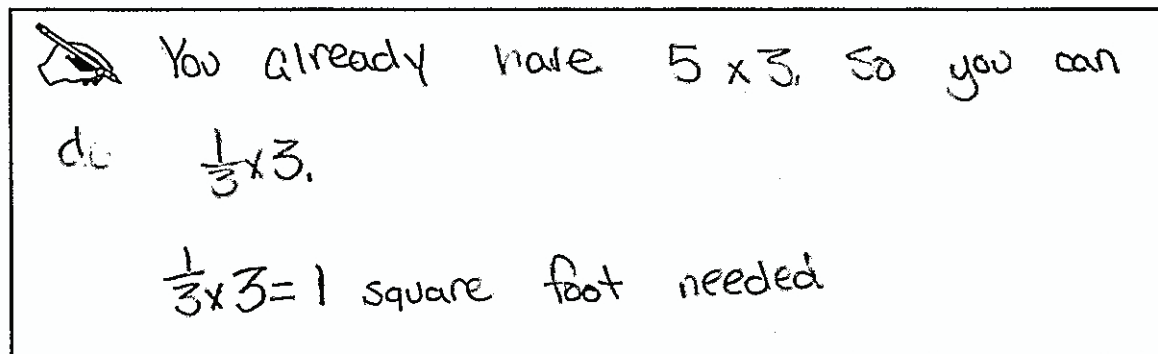 You already have 5 x 3. So you can
do 1/3 x 3.
1/3 x 3 = 1 square foot needed